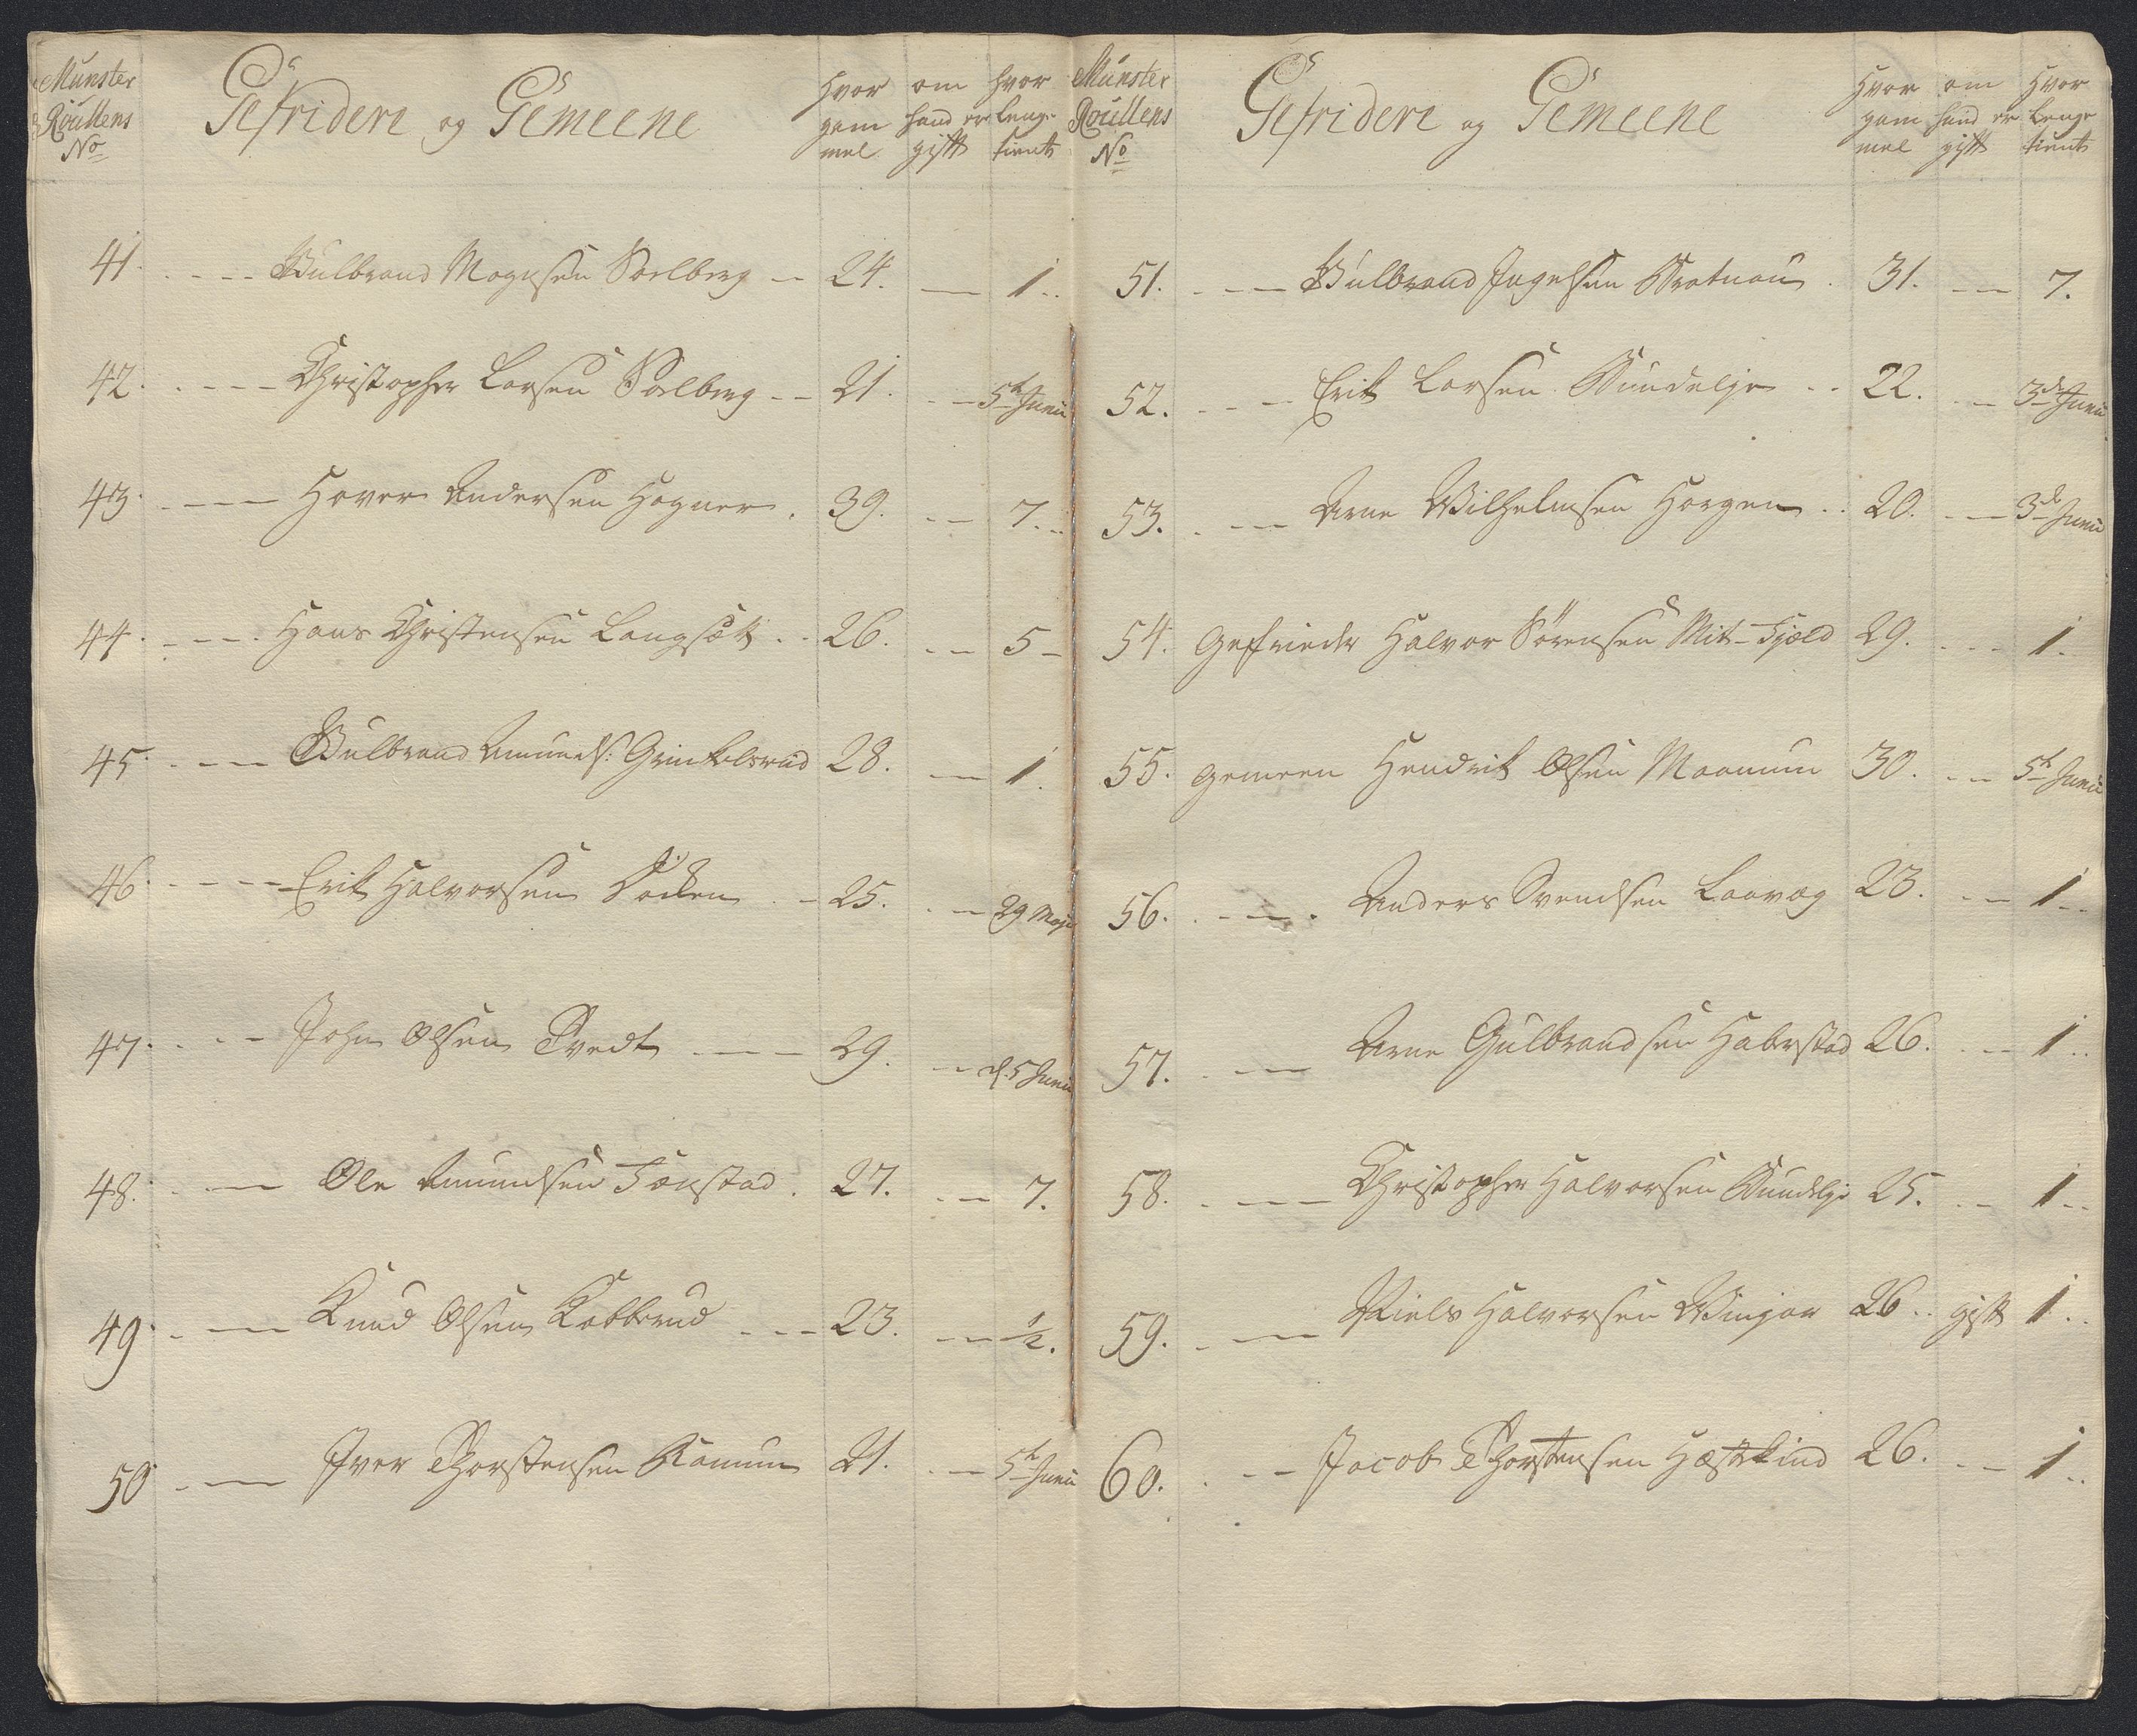 Munster
Roullens
No
Gefridere og Gemeene
Hvor
gam
mel
om
hand er
gift
hvor
lenge
tient
41. Gulbrand Mognsen Soelberg 24. 1.
42. Christopher Larsen Soelberg 21. 5te Junii
43. Haver Andersen Hagner. 39. 7.
44. Hans Christensen Langsæt 26. 5
45. Gulbrand Amunds: Grinkelsrud 28. 1.
46. Erik Halvorsen 25. 29 Maji
47. John Olsen Tvedt 29. d. 5 Junii
48. Ole Amundsen Fonstad. 27. 7.
49. Knud Olsen Kobberud 23. 1/2.
50 Iver Thorstensen Ramum 21. 5te Junii
Munster
Roullens
No
Gefridere og Gemeene
Hvor
gam
mel
om
hand er
gift
Hvor
lenge
tient
51. Gulbrand Ingelsen 31. 7.
52. Erik Larsen Sundelje 22. 3de Junii
53. Arne Wilhelmsen Horgen 20. 3de Junii
54. Gefrieder Halvor Sörensen Mit-Fjeld 29. 1.
55. Gemeen Hendrik Olsen Moamum 30. 5te Junii
56. Anders Svendsen Laavog 23. 1
57. Arne Gulbrandsen Haberstad 26. 1
58. Christopher Halvorsen Sundelje 25. 1
59. Niels Halvorsen Wingar 26. gift 1
60. Jacob Thorstensen Hæstkind 26. 1